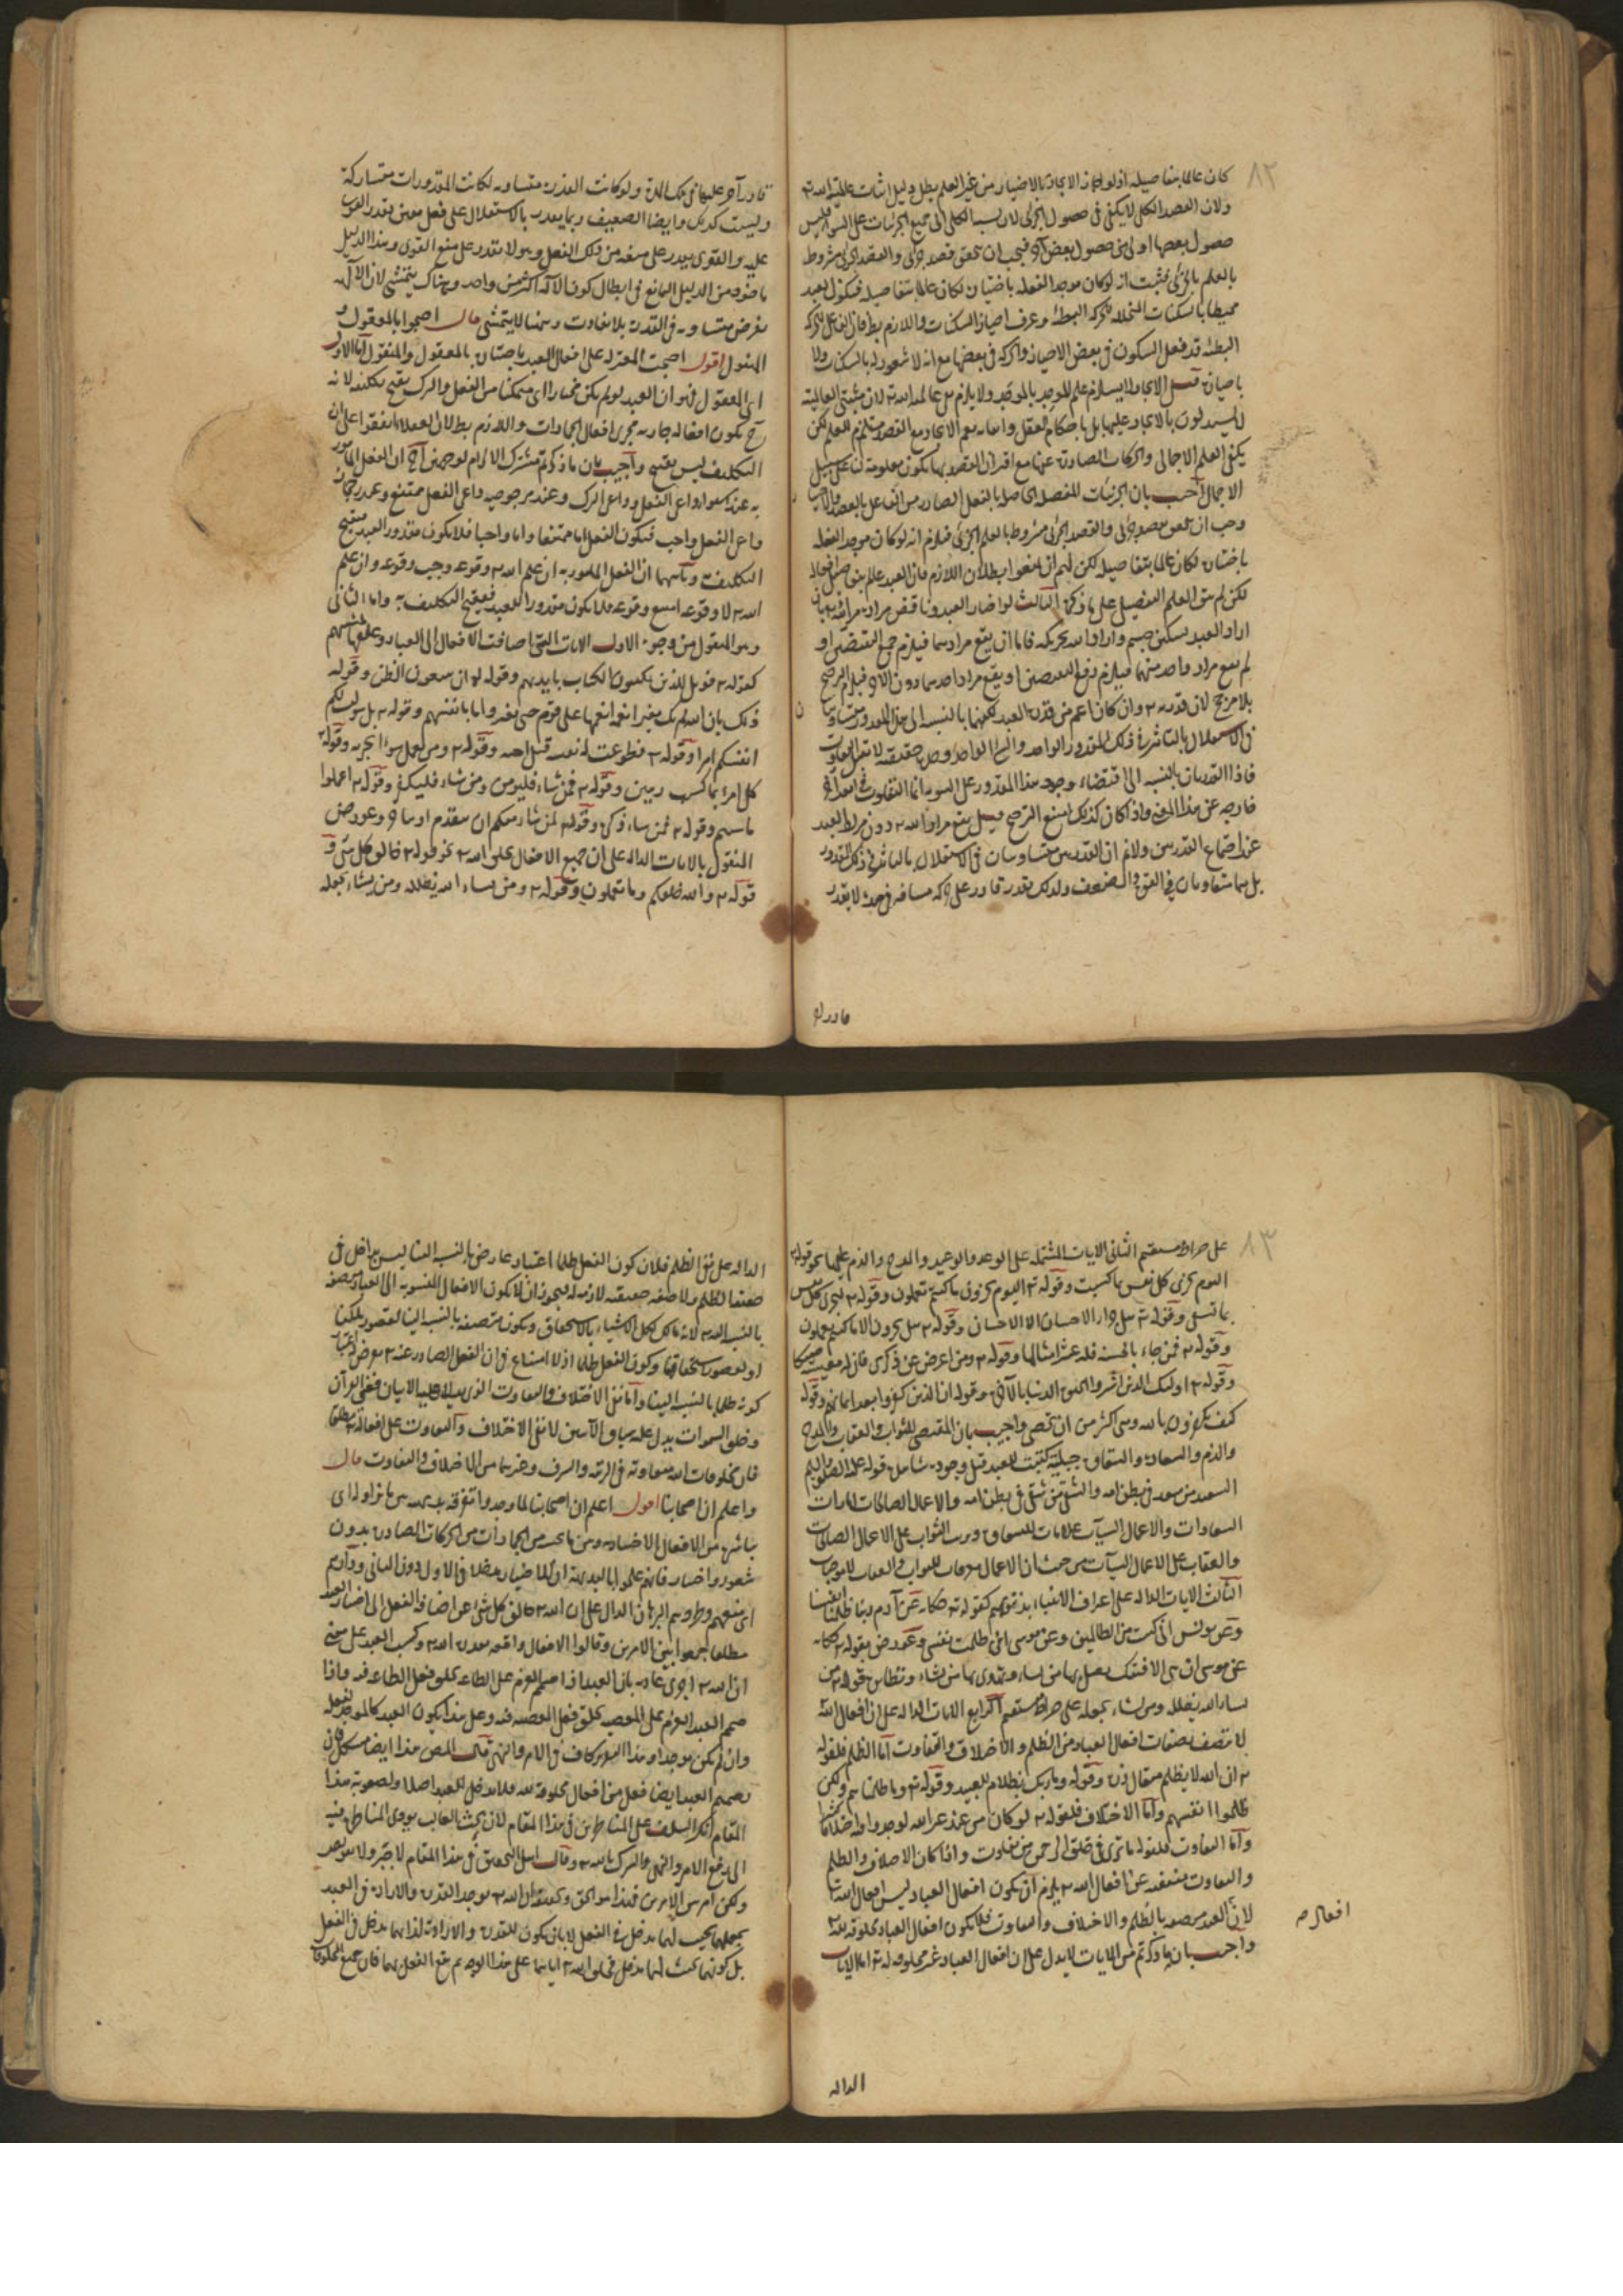 ٨٢
كان عالما بتفاصيله اذ لو جاز الايجاد بالاختيار من غير العلم بطل دليل اثبات عالمية الله تعه
ولان القصد الكلى لا يكفى فى حصول الجزئى لان نسبة الكلى الى جميع الجزئيات على السواء فليس
حصول بعضها اولى من حصول بعض آخر فيجب ان يتحقق قصد جزئى والقصد الجزئى مشروط
بالعلم بالجزئى فثبت انه لو كان موجد الفعله باختياره لكان عالما بتفاصيله فيكون العبد
محيطا بالسكنات المتخللة لحركته البطيئة وعرف احياز السكنات واللازم بط فان الفاعل للحركة
البطيئة قد فعل السكون فى بعض الاحياز والحركة فى بعضها مع انه لا شعور له بالسكنات ولا
باحيازه قيل الايجاد لا يستلزم علم الموجد بالموجد ولا يلزم نفى عالمية الله تعه لان مثبتى العالمية
لا يستدلون بالايجاد عليها بل باحكام الفعل واتقانه نعم الايجاد مع القصد مستلزم للعلم لكن
يكفى العلم الاجمالى والحركات الصادرة عنها مع اقتران القصد بها يكون معلومة لنا على سبيل
الاجمال اجيب بان الجزئيات المفصلة الحاصلة بالفعل الصادر من الفاعل بالقصد والاختيار
وجب ان يتعلق بقصد جزئى والقصد الجزئى مشروط بالعلم الجزئى فيلزم انه لو كان موجد الفعله
باختياره لكان عالما بتفاصيله لكن لهم ان يمنعوا بطلان اللازم فان العبد عالم بتفاصيل افعاله
لكن لم يبق العلم التفصيلى على ما ذكره الثالث لو اختار العبد وناقض مراده مراد الله تعه بان
اراد العبد تسكين جسم واراد الله تحريكه فاما ان يقع مرادهما فيلزم جمع النقيضين او
لم يقع مراد واحد منهما فيلزم رفع النقيضين او يقع مراد احدهما دون الاخر فيلزم الترجيح
بلا مرجح لان قدرته تعه وان كان اعم من قدرة العبد لكنهما بالنسبة الى هذا المقدور متساويتان
فى الاستقلال بالتاثير فى ذلك المقدور الواحد والشئ الواحد وحدة حقيقية لا يقبل التفاوت
فاذا القدرتان بالنسبة الى اقتضاء وجود هذا المقدور على السوية انما التفاوت فى امور اخر
خارجة عن هذا المعنى واذا كان كذلك امتنع الترجيح قيل يقع مراد الله تعه دون مراد العبد
عند اجتماع القدرتين ولا نم ان القدرتين متساويتان فى الاستقلال بالتاثير فى ذلك المقدور
بل هما متفاوتان فى القوة والضعف ولذلك يقدر قادر على حركة مسافة فى مدة لا يقدر
قادر آخر
قادر آخر عليها فى تلك المدة ولو كانت القدرة متساوية لكانت المقدورات متساركة
وليست كذلك وايضا الضعيف ربما يقدر بالاستقلال على فعل معين يقدر القوى
عليه والقوى يقدر على منعه من ذلك الفعل وهو لا يقدر على منع القوى وهذا الدليل
ماخوذ من الدليل المانع فى ابطال كون الاله اكثر من واحد وهناك يتمشى لان الاله
يفرض متساوية فى القدرة بلا تفاوت وهنا لا يتمشى قال احتجوا بالمعقول و
المنقول اقول احتجت المعتزلة على افعال العبد باختياره بالمعقول والمنقول اما الاول
اى المعقول فهو ان العبد لو لم يكن مختارا اى متمكنا من الفعل والترك يقبح تكليفه لانه
ح يكون افعاله جارية مجرى افعال الجمادات واللازم بط لان العقلاء اتفقوا على ان
التكليف ليس بقبيح واجيب بان ما ذكرتم مشترك الالزام لوجهين آ ان الفعل المامور
به عند استواء داعى الفعل وداعى الترك وعند مرجوحية داعى الفعل ممتنع وعند رجحان
داعى الفعل واجب فيكون الفعل اما ممتنعا واما واجبا فلا يكون مقدور العبد فيقبح
التكليف وثانيهما ان الفعل المامور به ان علم الله تعه وقوعه وجب وقوعه وان علم
الله تعه لا وقوعه امتنع وقوعه فلا يكون مقدورا للعبد فيقبح التكليف به واما الثانى
وهو المنقول فمن وجوه الاول الايات التى اضافت الافعال الى العباد وعلقها بمشيتهم
كقوله تعه فويل للذين يكتبون الكتاب بايديهم وقوله تعه ان يتبعون الا الظن وقوله
ذلك بان الله لم يك مغيرا نعمة انعمها على قوم حتى يغيروا ما بانفسهم وقوله تعه بل سولت لكم
انفسكم امرا وقوله تعه فطوعت له نفسه قتل اخيه وقوله تعه ومن يعمل سوءا يجز به وقوله تعه
كل امرئ بما كسب رهين وقوله تعه فمن شاء فليؤمن ومن شاء فليكفر وقوله تعه اعملوا
ما شئتم وقوله تعه فمن شاء ذكره وقوله لمن شاء منكم ان يتقدم او يتاخر وعورض
المنقول بالايات الدالة على ان جميع الافعال بخلق الله تعه نحو قوله تعه خالق كل شئ و
قوله تعه والله خلقكم وما تعملون وقوله تعه ومن يشاء الله يضلله ومن يشاء يجعله
٨٣
على صراط مستقيم الثانى الايات المشتملة على الوعد والوعيد والمدح والذم عليها نحو قوله تعه
اليوم تجزى كل نفس بما كسبت وقوله تعه اليوم تجزون ما كنتم تعملون وقوله تعه لتجزى كل نفس
بما تسعى وقوله تعه هل جزاء الاحسان الا الاحسان وقوله تعه هل تجزون الا ما كنتم تعملون
وقوله تعه فمن جاء بالحسنة فله عشر امثالها وقوله تعه ومن اعرض عن ذكرى فان له معيشة ضنكا
وقوله تعه اولئك الذين اشتروا الحيوة الدنيا بالاخرة وقوله ان الذين كفروا بعد ايمانهم وقوله
كيف تكفرون بالله وهى اكثر من ان تحصى واجيب بان المقتضى للثواب والعقاب والمدح
والذم والسعادة والشقاوة جبلية كتبت للعبد قبل وجوده
السعيد من سعد فى بطن امه والشقى من شقى فى بطن امه والاعمال الصالحات امارات
السعادات والاعمال السيات علامات للشقاوة وترتب الثواب على الاعمال الصالحات
والعقاب على الاعمال السيات من حيث ان الاعمال معرفات للثواب والعقاب لا موجبات
الثالث الايات الدالة على اعتراف الانبياء بذنوبهم كقوله تعه حكاية عن آدم ربنا ظلمنا انفسنا
وعن يونس انى كنت من الظالمين وعن موسى انى ظلمت نفسى وعورض بقوله تعه حكاية
عن موسى ان هى الا فتنتك تضل بها من تشاء وتهدى بها من تشاء ونظائره نحو قوله تعه من
يشاء الله يضلله ومن يشاء يجعله على صراط مستقيم الرابع الايات الدالة على ان افعال الله
لا تتصف بصفات افعال العباد من الظلم والاختلاف والتفاوت اما الظلم فلقوله
تعه ان الله لا يظلم مثقال ذرة وقوله وما ربك بظلام للعبيد وقوله تعه وما ظلمناهم ولكن
ظلموا انفسهم واما الاختلاف فلقوله تعه لو كان من عند غير الله لوجدوا فيه اختلافا كثيرا
واما التفاوت فلقوله ما ترى فى خلق الرحمن من تفاوت واذا كان الاختلاف والظلم
والتفاوت منتفية عن افعال الله تعه يلزم ان يكون افعال العباد ليس افعال الله تعه
لان افعال العبد متصفة بالظلم والاختلاف والتفاوت فلا يكون افعال العباد مخلوقة لله تعه
واجيب بان ما ذكرتم من الايات لا يدل على ان افعال العباد غير مخلوقة له تعه اما الايات
افعال صح
الدالة
الدالة على نفى الظلم فلان كون الفعل ظلما اعتبار عارض بالنسبة الينا ليس بداخل فى
حقيقة الظلم ولا صفة حقيقية لازمة له فيجوز ان لا يكون الافعال المنسوبة الى العباد متصفة
بالنسبة الى الله تعه لانه مالك لكل الاشياء بالاستحقاق ويكون متصفة بالنسبة الينا لقصور ملكنا
او لقصور استحقاقنا وكون الفعل ظلما اذ لا امتناع فى ان الفعل الصادر عنه تعه يعرض له باعتبار
كونه ظلما بالنسبة الينا واما نفى الاختلاف والتفاوت الذى يدل عليه الايتان فعن القرآن
وخلق السموات يدل عليه سياق الآيتين لا نفى الاختلاف والتفاوت على افعاله تعه مطلقا
فان مخلوقات الله متفاوتة فى الرتبة والشرف وغيرهما من الاختلاف والتفاوت قال
واعلم ان اصحابنا اقول اعلم ان اصحابنا لما وجدوا تفرقة بديهية بين ما نزاوله اى
نباشره من الافعال الاختيارية وبين ما نحسه من الجمادات من الحركات الصادرة بدون
شعور واختيار فانهم علموا بالبديهة ان للاختيار مدخلا فى الاول دون الثانى وذادهم
اى منعهم وطردهم البرهان الدال على ان الله تعه خالق كل شئ عن اضافة الفعل الى اختيار العبد
مطلقا جمعوا بين الامرين وقالوا الافعال واقعة بقدرة الله تعه وكسب العبد على معنى
ان الله تعه اجرى عادته بان العبد اذا صمم العزم على الطاعة يخلق فعل الطاعة فيه واذا
صمم العبد العزم على المعصية يخلق فعل المعصية فيه وعلى هذا يكون العبد كالموجد لفعله
وان لم يكن موجدا وهذا القدر كاف فى الامر والنهى قال المص هذا ايضا مشكل فان
تصميم العبد ايضا فعل من افعال مخلوقة لله فلا مدخل للعبد اصلا ولصعوبة هذا
المقام انكر السلف على المناظرين فى هذا المقام لان بحث الغالب يؤدى المناظرة فيه
الى رفع الامر والنهى والشرك بالله تعه وقال اهل التحقيق فى هذا المقام لا جبر ولا تفويض
ولكن امر بين الامرين فهذا هو الحق وتحقيقه ان الله تعه يوجد القدرة والارادة فى العبد
يجعلهما بحيث لهما مدخل فى الفعل لا بان يكون للقدرة والارادة لذاتهما مدخل فى الفعل
بل كونهما بحيث لهما مدخل بخلق الله تعه اياهما على هذا الوجه ثم يقع الفعل بهما فان جميع المخلوقات